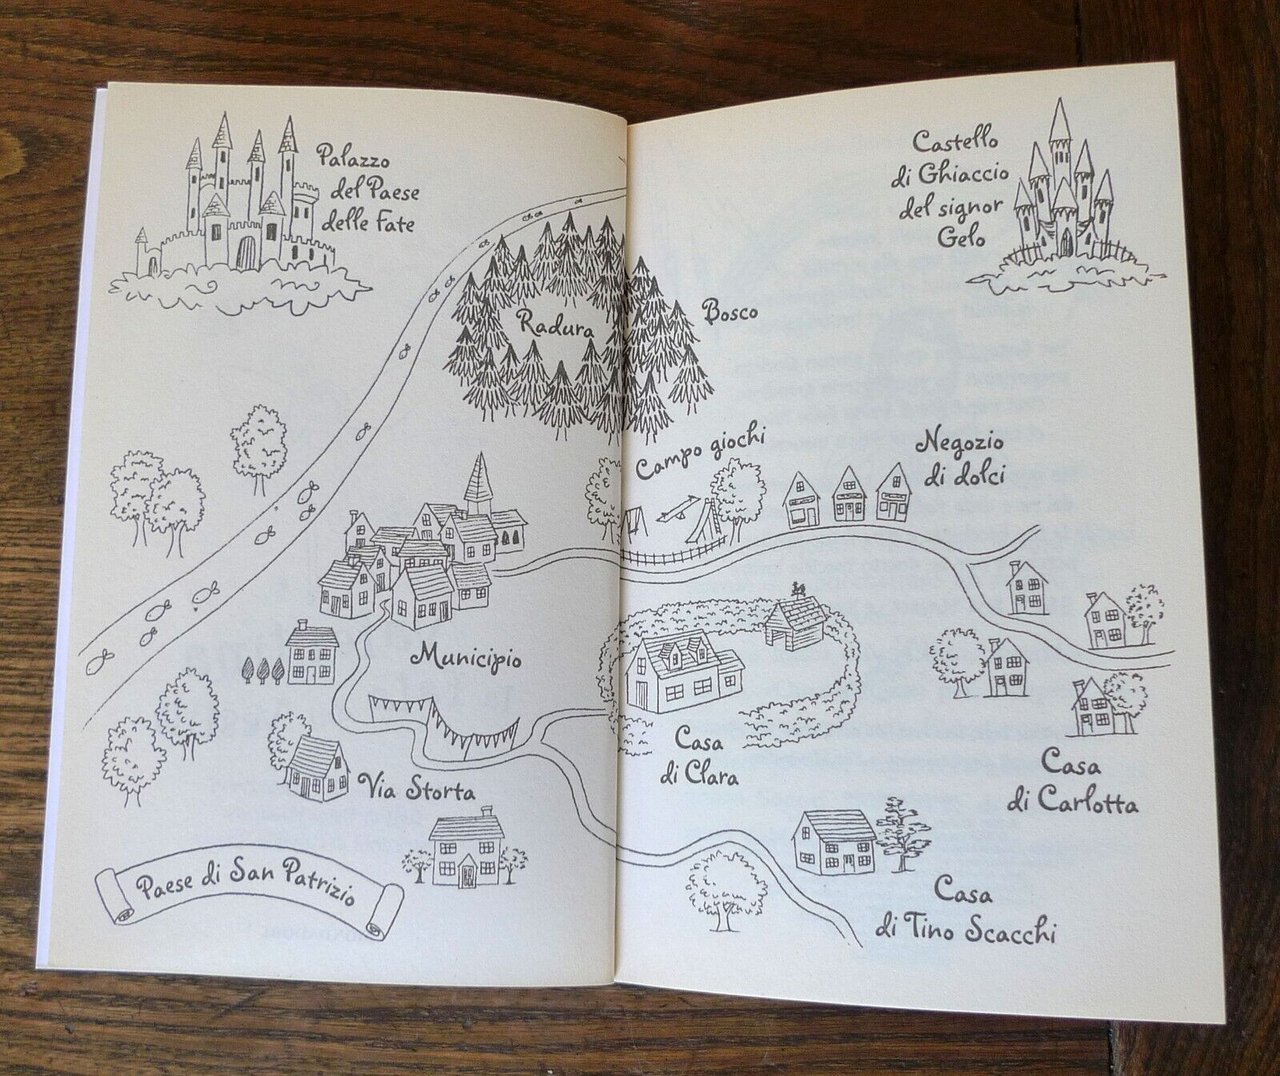 Palazzo
del Paese
delle Fate
Castello
di Ghiaccio
del signor
Gelo
Radura
Bosco
Campo giochi
Negozio
di dolci
Municipio
Casa
di Clara
Via Storta
Casa
di Carlotta
Paese di San Patrizio
Casa
di Tino Scacchi